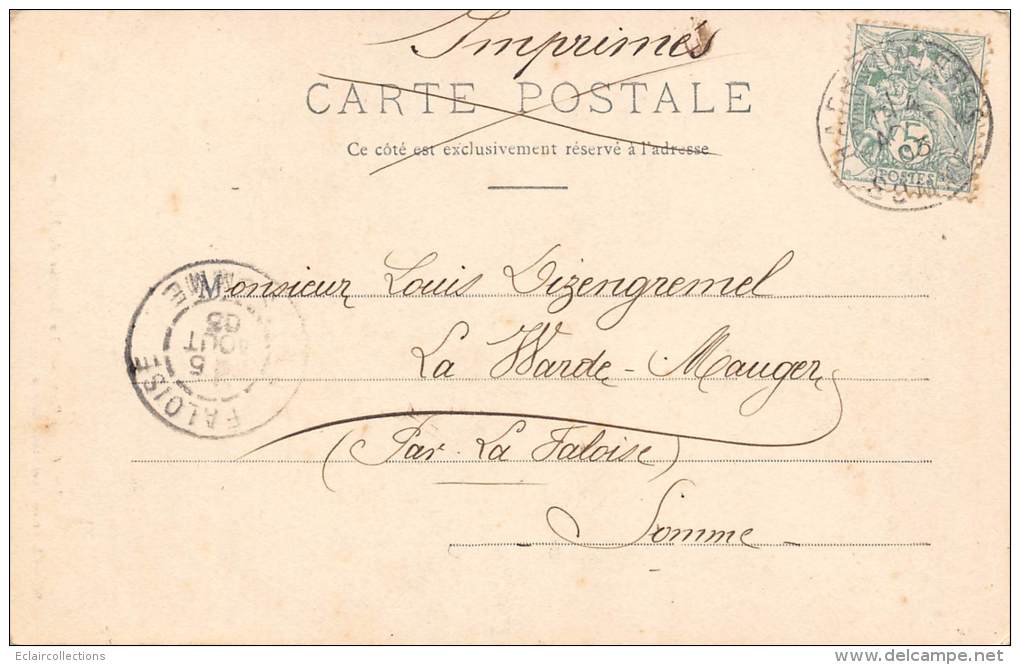 Imprimés
CARTE POSTALE
Ce côté est exclusivement réservé à l'adresse
5
POSTES
Monsieur Louis Dizengremel
La Warde-Mauger
(Par La Faloise)
Somme
FALOISE
5
AOUT
03
SOMME
Eclaircollections
www.delcampe.net